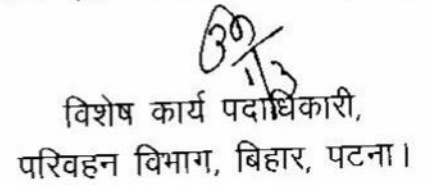 विशेष कार्य पदाधिकारी,
परिवहन विभाग, बिहार, पटना।